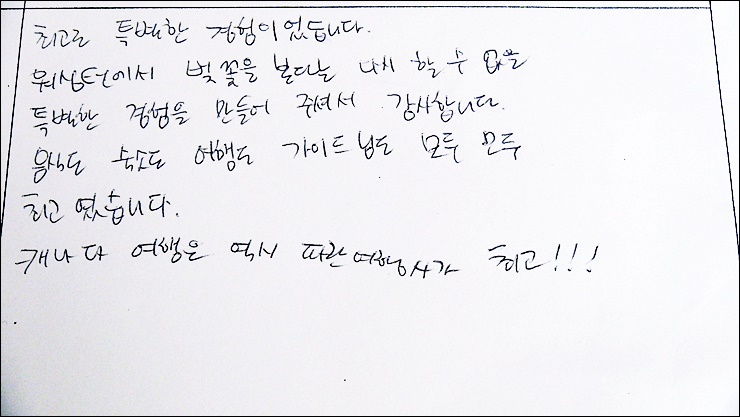 최고로 특별한 경험이었습니다.
워싱턴에서 벚꽃을 본다는 나치 할 수 없을
특별한 경험을 만들어 주셔서 감사합니다.
음식도 숙소도 여행도 가이드님도 모두 모두
최고 였습니다.
캐나다 여행은 역시 파란여행사가 최고!!!